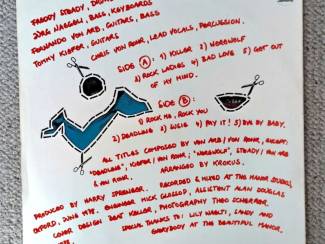 FREDDY STEADY, DRUMS
JÜRG NAEGELI, BASS, KEYBOARDS
FERNANDO VON ARB, GUITARS, BASS
TOMMY KIEFER, GUITARS
CHRIS VON ROHR, LEAD VOCALS, PERCUSSION.
SIDE A: 1) KILLER 2) WEREWOLF
3) ROCK LADIES 4) BAD LOVE 5) GET OUT
OF MY MIND.
SIDE B:
1) ROCK ME, ROCK YOU
2) DEADLINE 3) SUSIE 4) PAY IT! 5) BYE BYE BABY.
ALL TITLES COMPOSED BY VON ARB/VON ROHR, EXCEPT:
"DEADLINE", KIEFER/VON ROHR; "WEREWOLF", STEADY/VON ARB
& VON ROHR. ARRANGED BY KROKUS.
PRODUCED BY HARRY SPRENGER. RECORDED & MIXED AT THE MANOR STUDIOS,
OXFORD, JUNE 1978. ENGINEER MICK GLOSSOP, ASSISTENT ALAN DOUGLAS
COVER DESIGN BEAT KELLER, PHOTOGRAPHY THEO SCHERRER.
SPECIAL THANKS TO: LILY NAEFTI, SANDY AND
EVERYBODY AT THE BEAUTIFUL MANOR.